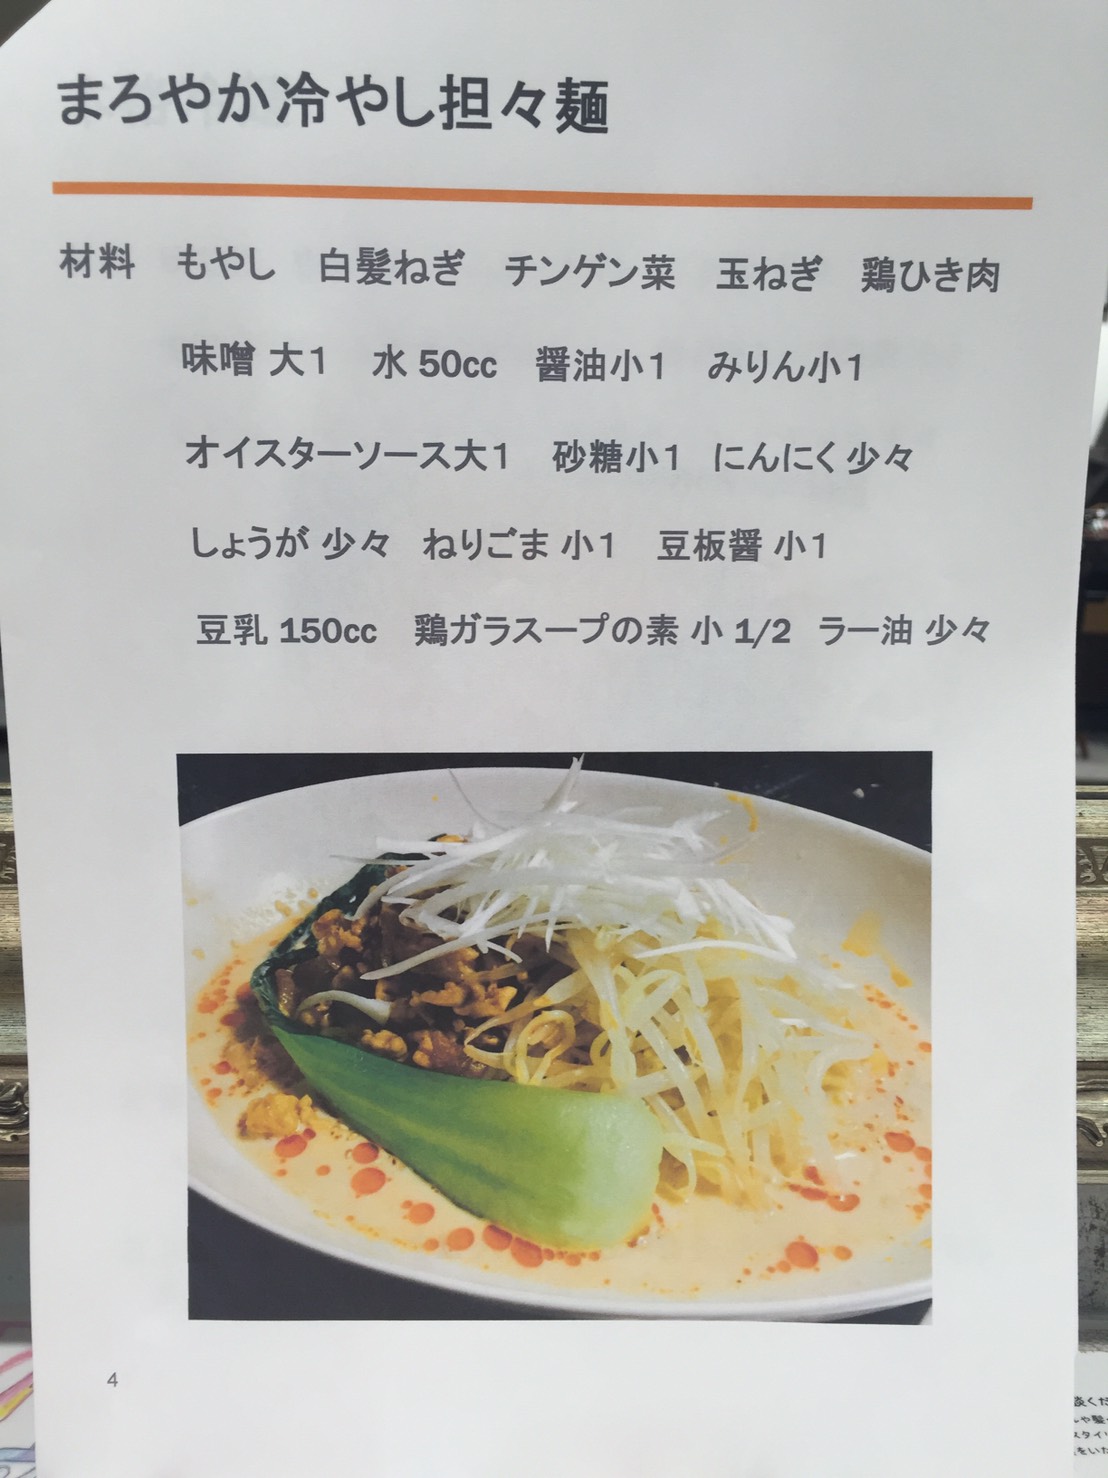 まろやか冷やし担々麺
材料 もやし 白髪ねぎ チンゲン菜 玉ねぎ 鶏ひき肉
味噌 大1 水 50cc 醤油小1 みりん小1
オイスターソース大1 砂糖小1 にんにく 少々
しょうが 少々 ねりごま 小1 豆板醤 小1
豆乳 150cc 鶏ガラスープの素 小 1/2 ラー油 少々
4